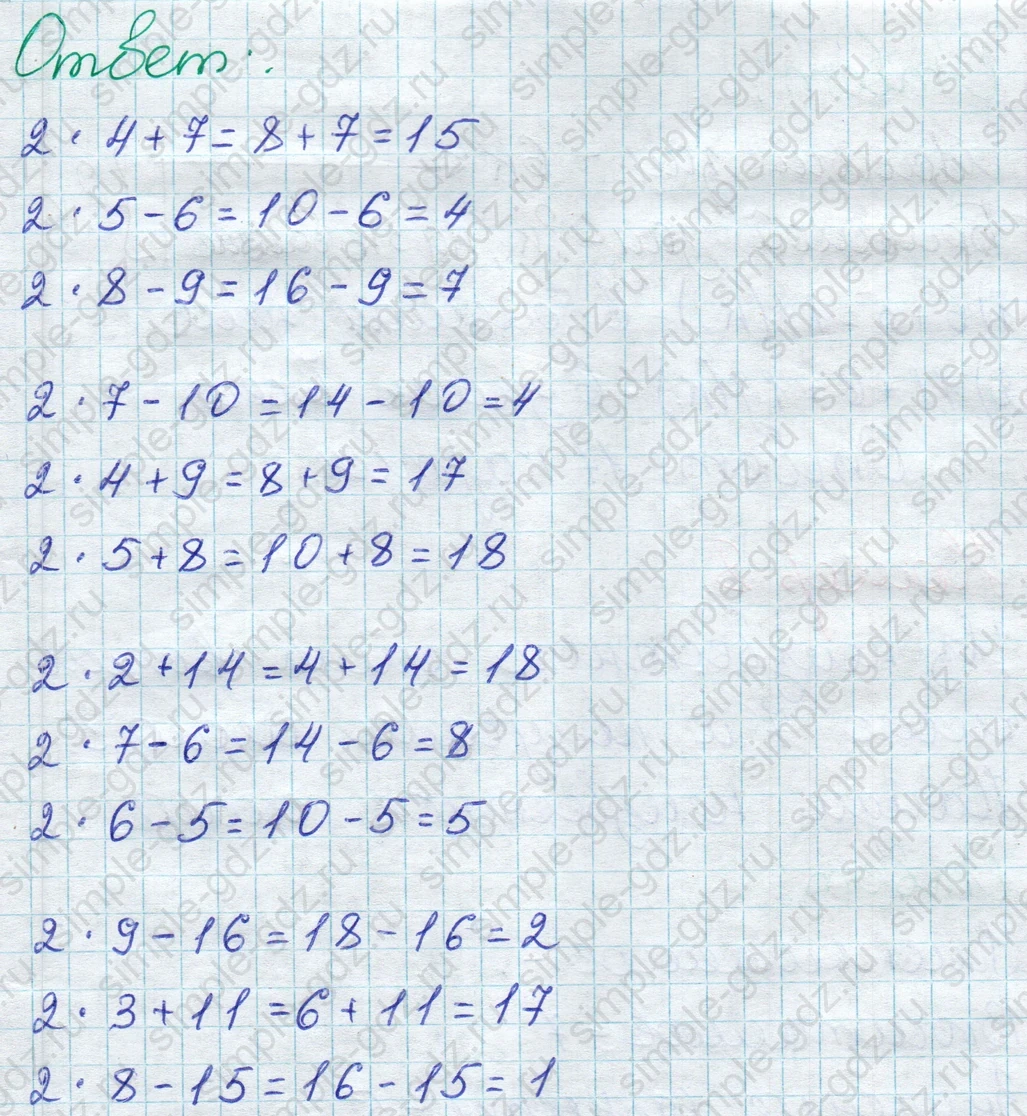 Ответ:
2 · 4 + 7 = 8 + 7 = 15
2 · 5 - 6 = 10 - 6 = 4
2 · 8 - 9 = 16 - 9 = 7
2 · 7 - 10 = 14 - 10 = 4
2 · 4 + 9 = 8 + 9 = 17
2 · 5 + 8 = 10 + 8 = 18
2 · 2 + 14 = 4 + 14 = 18
2 · 7 - 6 = 14 - 6 = 8
2 · 6 - 5 = 10 - 5 = 5
2 · 9 - 16 = 18 - 16 = 2
2 · 3 + 11 = 6 + 11 = 17
2 · 8 - 15 = 16 - 15 = 1
simple-gdz.ru